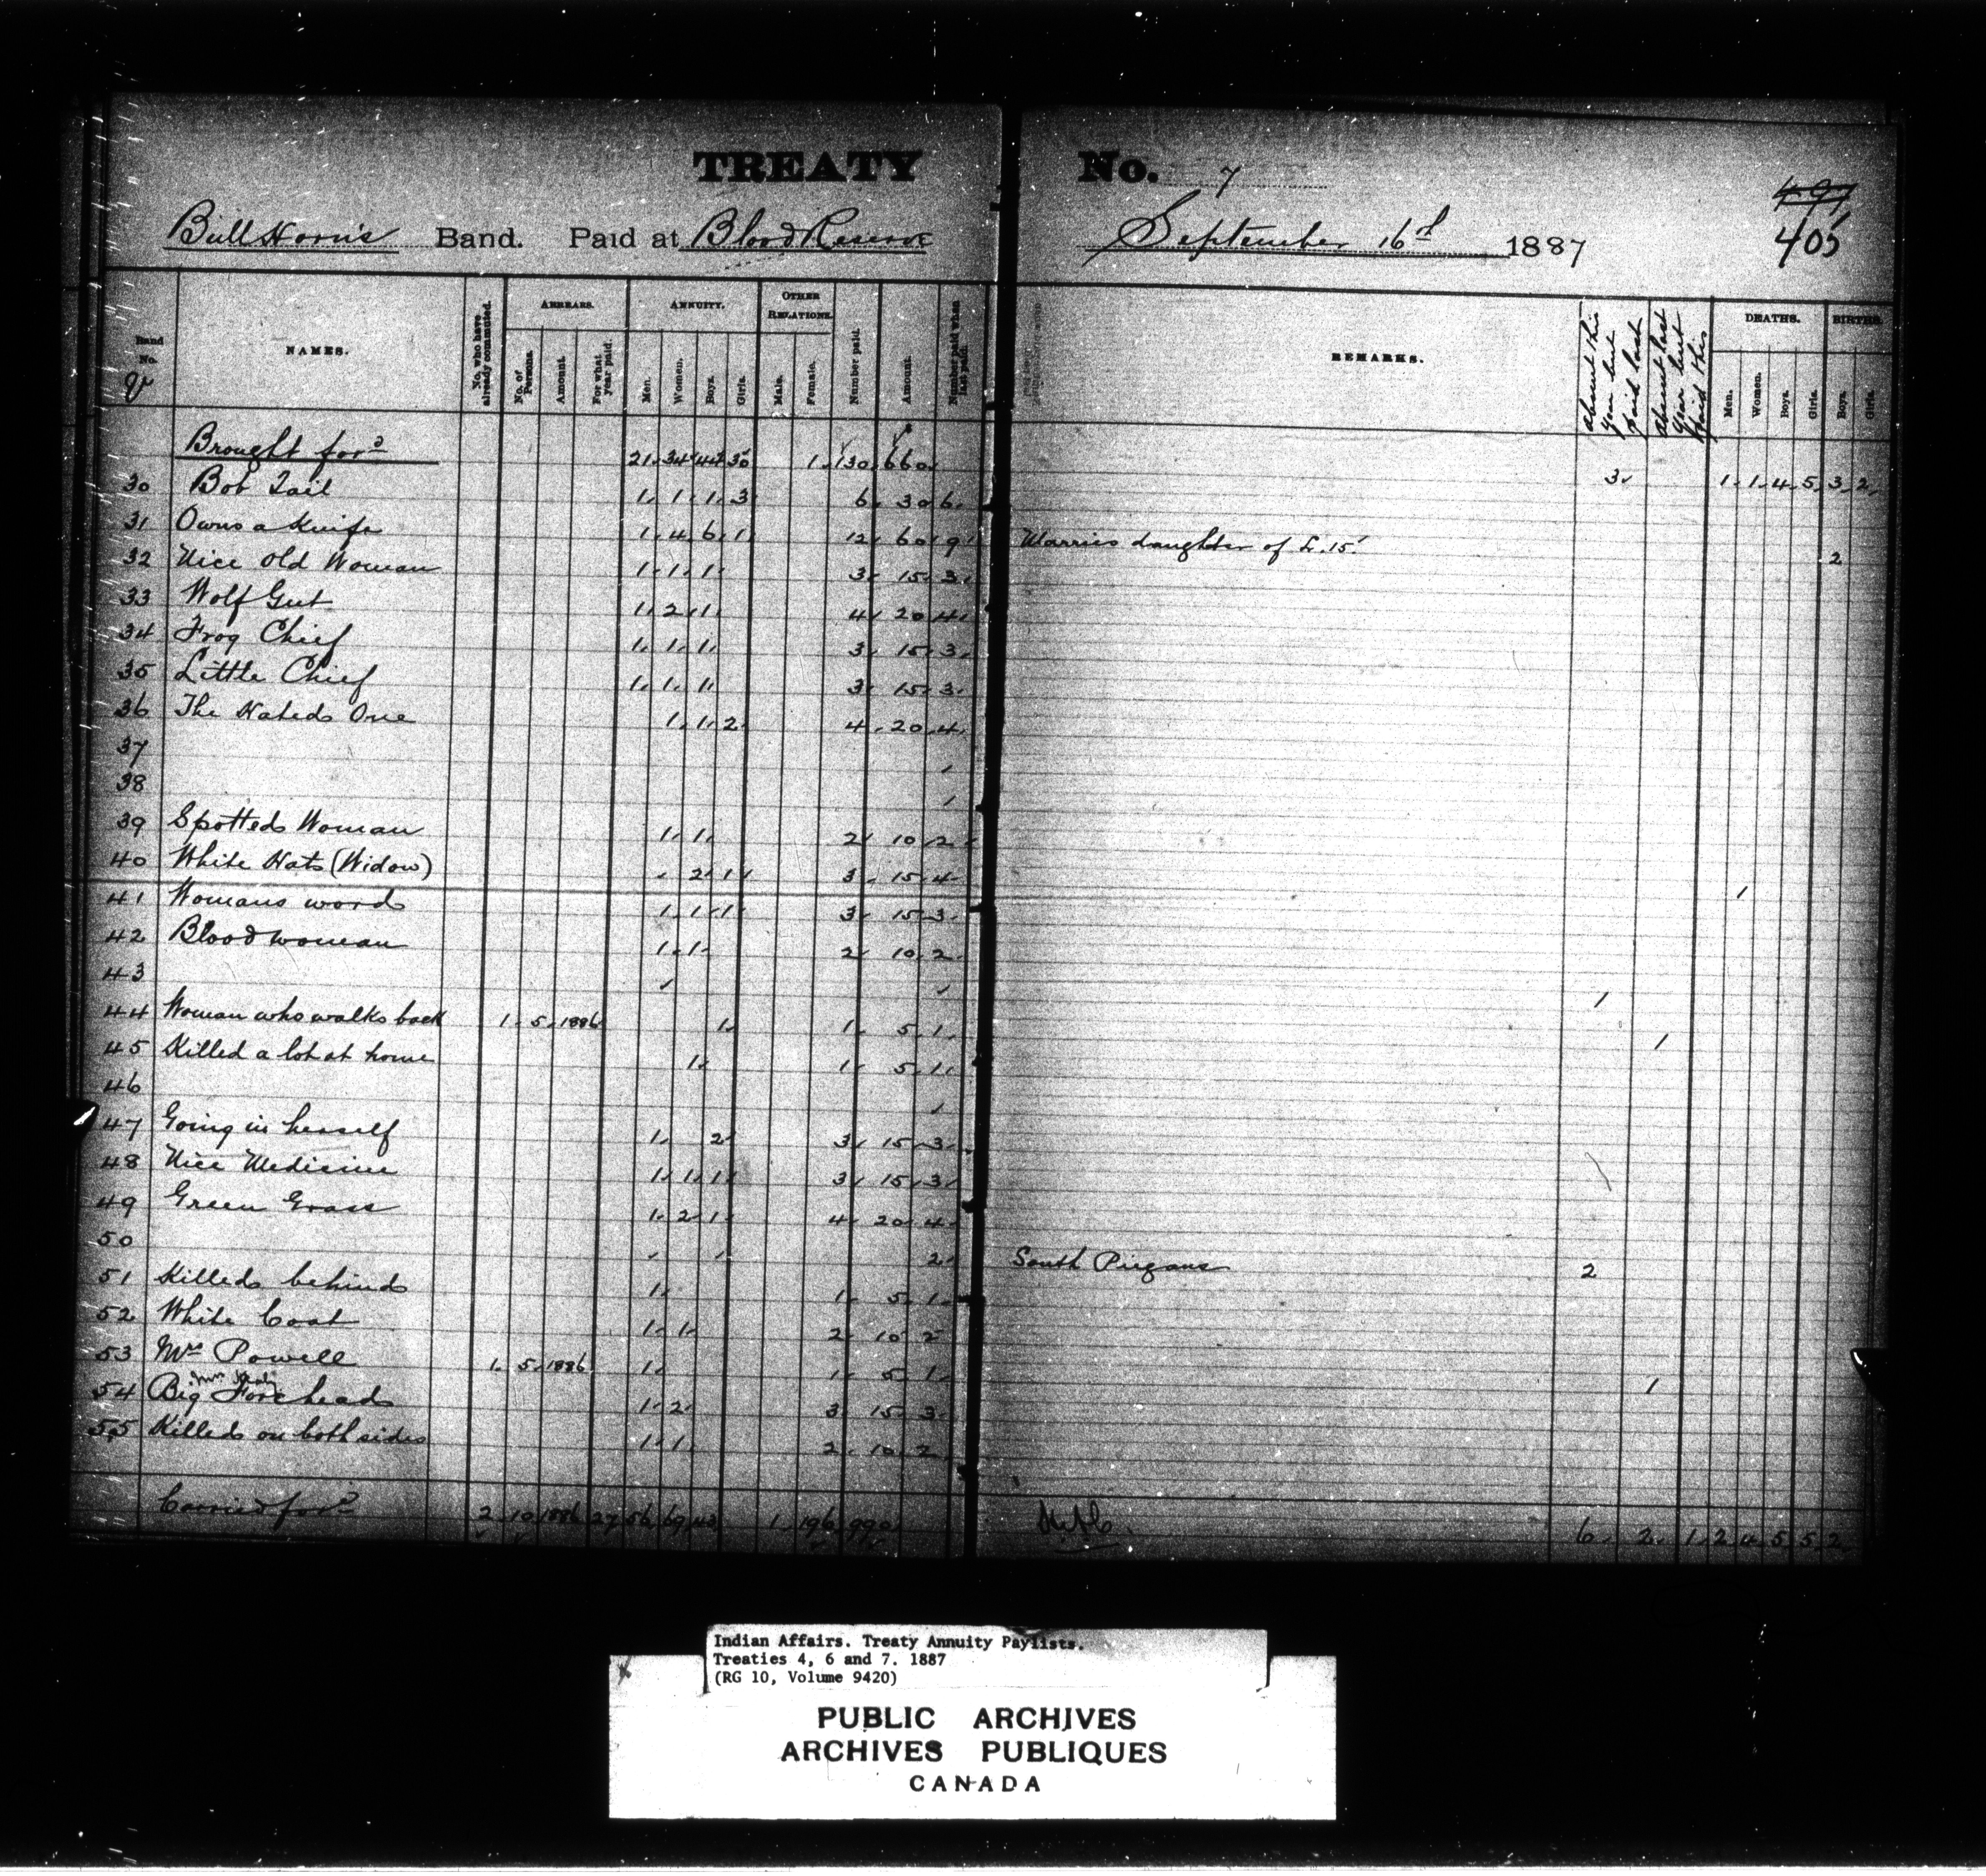 TREATY No. 7
497
405
Bull Horn's Band. Paid at Blood Reserve September 16th 1887
Band No. NAMES. No. who have already commuted. ARREARS. No. of Persons. Amount. For what year paid. ANNUITY. Men. Women. Boys. Girls. OTHER RELATIONS. Male. Female. Number paid. Amount. Number paid when last paid. REMARKS. Absent this year but paid last Absent last year but paid this DEATHS. Men. Women. Boys. Girls. BIRTHS. Boys. Girls.
Brought ford 21 34 44 30 1 130 660 3 1 1 4 5 3 2
30 Bob Tail 1 1 1 3 6 30 6
31 Owns a Knife 1 4 6 1 12 60 9 Marries daughter of L. 15 2
32 Nice Old Woman 1 1 1 3 15 3
33 Wolf Gut 1 2 1 4 20 4
34 Frog Chief 1 1 1 3 15 3
35 Little Chief 1 1 1 3 15 3
36 The Hated One 1 1 2 4 20 4
37 1
38 1
39 Spotted Woman 1 1 2 10 2
40 White Hats (Widow) 2 1 3 15 4 1
41 Womans word 1 1 1 3 15 3
42 Blood woman 1 1 2 10 2
43 1 1
44 Woman who walks back 1 5 1886 1 1 5 1 1
45 Killed a lot at home 1 1 5 1
46 1
47 Going in herself 1 2 3 15 3
48 Nice Medicine 1 1 1 3 15 3
49 Green Grass 1 2 1 4 20 4
50 2 South Piegans 2
51 Killed behind 1 1 5 1
52 White Coat 1 1 2 10 2
53 Mrs Powell 1 5 1886 1 1 5 1 1
54 Big Forehead 1 2 3 15 3
55 Killed on both sides 1 1 2 10 2
Carried ford 2 10 1886 27 56 69 43 1 196 990 6 2 1 2 4 5 5 2
Indian Affairs. Treaty Annuity Paylists.
Treaties 4, 6 and 7. 1887
(RG 10, Volume 9420)
PUBLIC ARCHIVES
ARCHIVES PUBLIQUES
CANADA